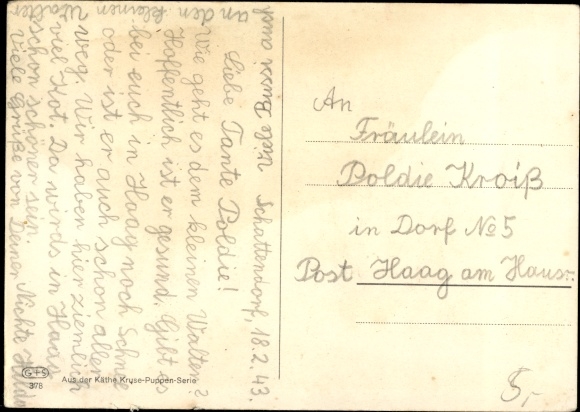 Schattendorf, 18.2.43.
Liebe Tante Poldie!
Wie geht es dem kleinen Walter?
Hoffentlich ist er gesund. Gibt es
bei euch in Haag noch Schnee
oder ist er auch schon aller
weg. Wir haben hier ziemlich
viel Kot. Da wirds in Haag
schon schöner sein.
Viele Grüße von Deiner Nichte Hilde
Viele Bussi auch
an den kleinen
Walter
An
Fräulein
Poldie Kroiß
in Dorf № 5
Post Haag am Hausr.
5,-
G+S
378
Aus der Käthe Kruse-Puppen-Serie